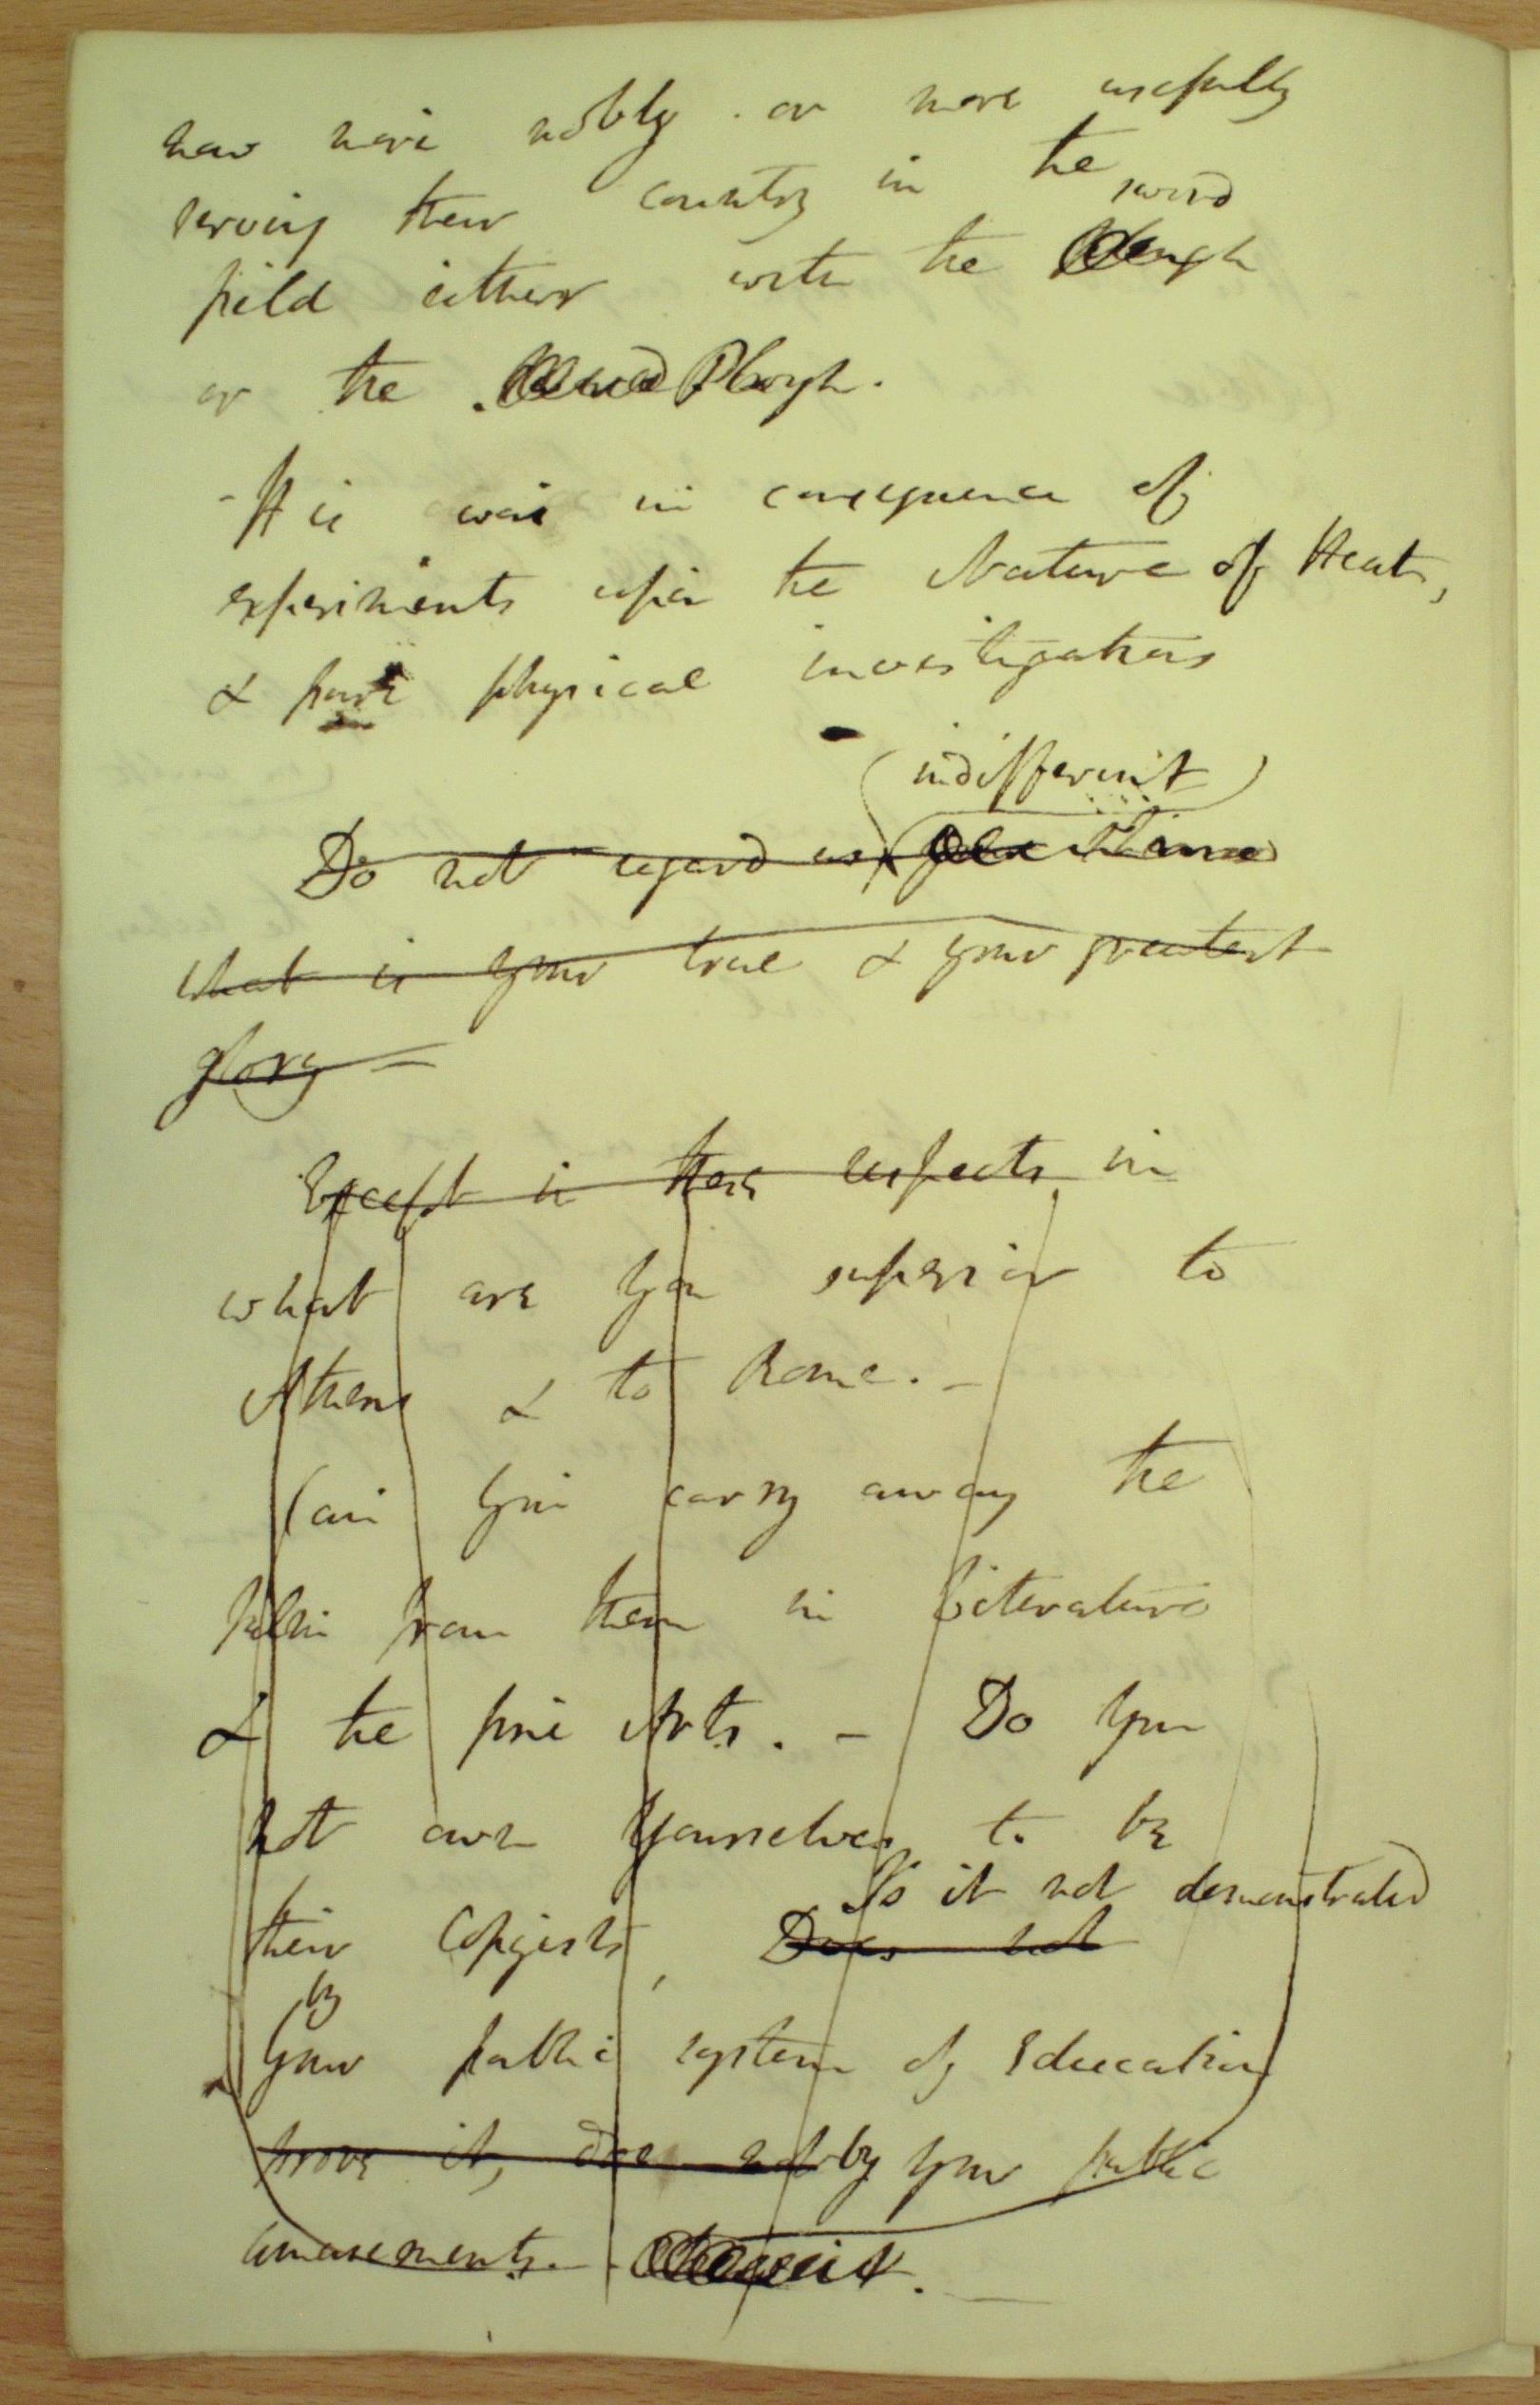 now more nobly. or more usefully
serving their country in the
sword
field either with the Plough
or the Sword Plough.
- It is was in consequence of
experiments upon the Nature of Heat,
& pure physical investigations
(indifferent)
Do not regard as
what is your true & your greatest
glory —
Except in these respects in
what are you superior to
Athens & to Rome. —
Can you carry away the
palm from them in Literature
& the fine Arts. — Do you
not own yourselves to be
Is it not demonstrated
their Copyists, Does not
by
your public system of Education
prove it, does not by your public
amusements.